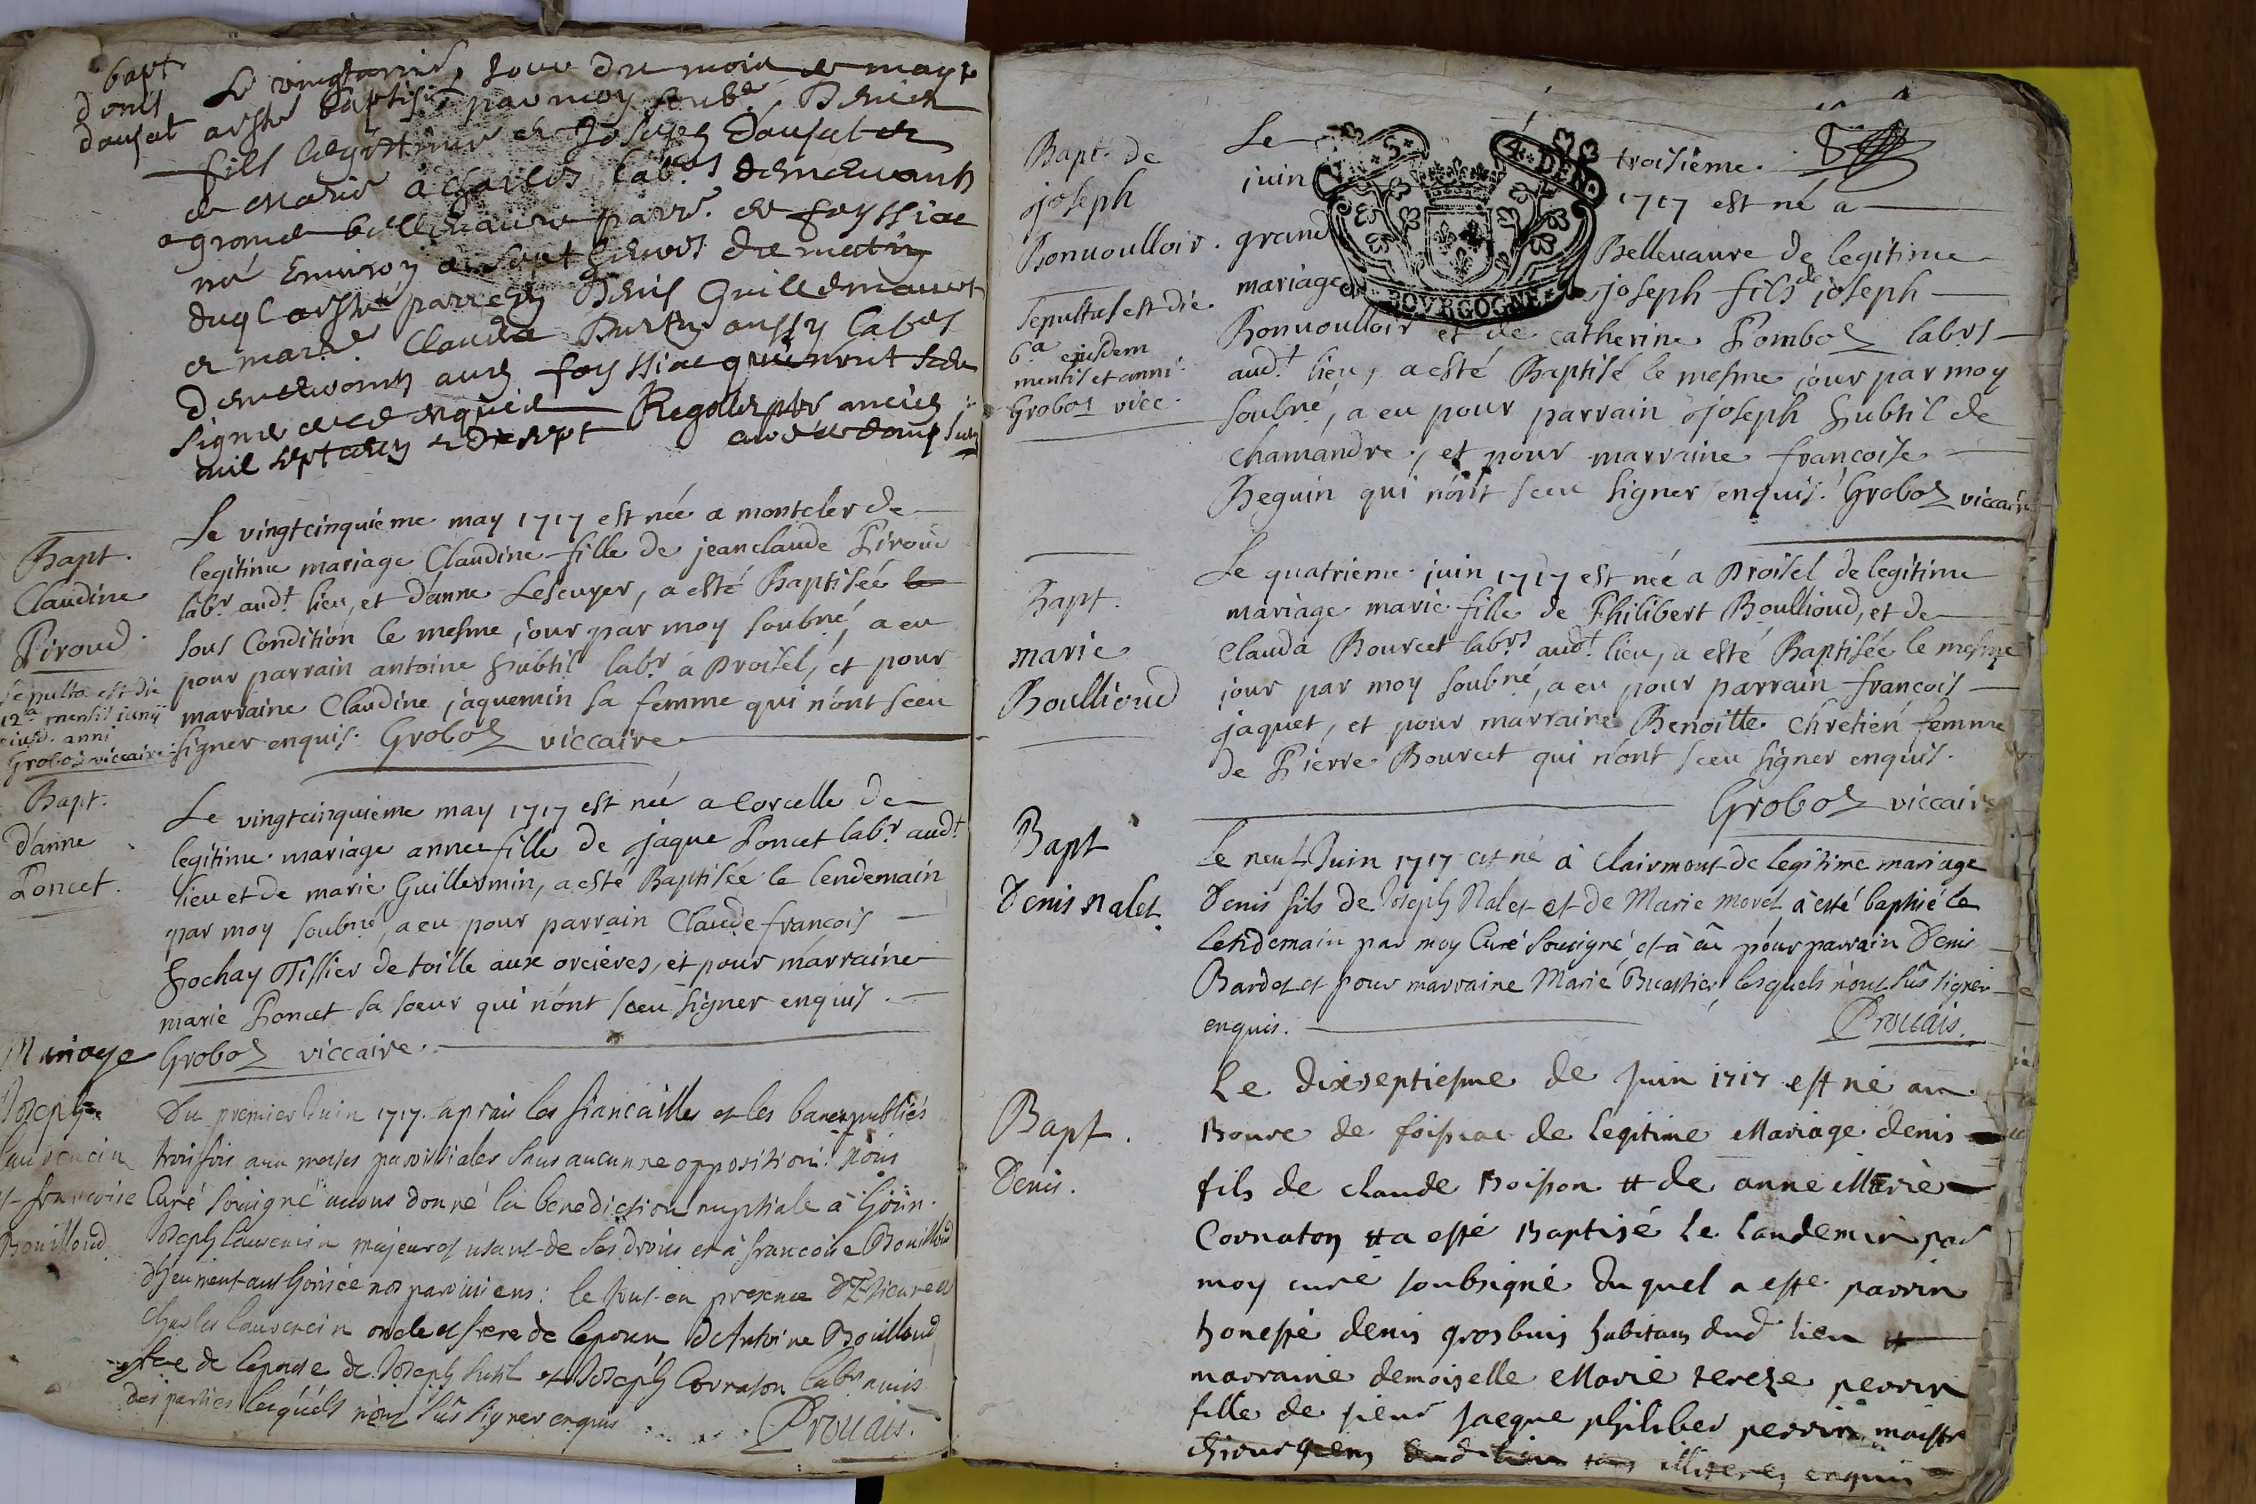 bapt
denis
daujat
Le vingt jour du moi de may
a esté baptisé par moy soubs. Denis
fils legitime de Joseph daujat et
de Marie a Charles lab.rs demeurants
a grand bellevaure parr. de foyssiac
né environ a sept heures du matin
duql a esté parrein Denis Guillemaut
et marr. Clauda aussy lab.rs
demeurants aud foyssiac qui n'ont sceu
signer de ce enquis
mil sept cens et dix sept
Bapt.
Claudine
Piroud.
Sepulta est die
12.a mensis iunij
eiusd. anni
Grobos viccaire
Le vingtcinquiéme may 1717 est née a monteler de
legitime mariage Claudine fille de jeanclaude Piroud
lab.r aud.t lieu, et d'anne Lescuyer, a esté Baptisée le
sous Condition le mesme jour par moy soubné, a eu
pour parrain antoine Subtil lab.r a Droisel, et pour
marraine Claudine jaquemin sa femme qui n'ont sceu
signer enquis. Grobos viccaire
Bapt.
d'anne
Poncet.
Le vingtcinquiéme may 1717 est née a Corcelle de
legitime mariage anne fille de jaque Poncet lab.r aud.t
lieu et de marie Guillermin, a esté Baptisée le lendemain
par moy soubné, a eu pour parrain Claude francois
Hochay Tissier de toille aux orciéres, et pour marraine
marie Poncet sa soeur qui n'ont sceu signer enquis.
Grobos viccaire.
Mariage
Joseph
Laurencin
et francoise
Bouilloud
Du premier Juin 1717. aprais les fiancailles et les bans publiés
trois fois aux messes paroissiales sans aucunne opposition. Nous
Curé souigné avons donné la benediction nuptiale à
Joseph Laurencin majeur et usant de ses droits et à francoise Bouilloud
authorisée nos paroissiens: le tout en presence
Charles Laurencin oncle et frere de lepoux, de Antoine Bouilloud
frere de lepouse de Joseph Sutil et Joseph Cornaton lab.rs amis
des parties lesquels n'ont sûs signer enquis
Prouais.
Bapt. de
joseph
Bonuoulloir.
Sepultus est die
6.a eiusdem
mensis et anni.
Grobos vicc.
Le troisiéme.
juin 1717 est né a
grand Bellevaure de legitime
mariage joseph fils de joseph
BOVRGOGNE
Bonuoulloir et de catherine Pombos lab.rs
aud.t lieu, a esté Baptisé le mesme jour par moy
soubné, a eu pour parrain joseph Subtil de
chamandre, et pour marraine francoise
Beguin qui n'ont sceu signer enquis. Grobos viccaire
Bapt.
marie
Boullioud
Le quatriéme juin 1717 est née a Droisel de legitime
mariage marie fille de Philibert Boullioud, et de
Clauda Bourcet lab.rs aud.t lieu, a esté Baptisée le mesme
jour par moy soubné, a eu pour parrain francois
jaquet, et pour marraine Benoitte Chretien femme
de Pierre Bourcet qui n'ont sceu signer enquis.
Grobos viccaire
Bapt
Denis Nalet.
Le neuf Juin 1717 est né à Clairmont de legitime mariage
Denis fils de Joseph Nalet et de Marie Morel à esté baptisé le
lendemain par moy Curé Souigné et à eû pour parrain Denis
Bardet et pour marraine Marie lesquels n'ont sûs signer
enquis.
Prouais.
Bapt.
Denis.
Le dixseptiesme de Juin 1717 est né au
Bourc de foissiac de legitime Mariage denis
fils de claude Boisson et de anne Marie
Cornaton et a esté Baptisé le landemin par
moy curé soubsigné duquel a esté parrin
honesté denis grosbuis habitans dud lieu et
marraine demoiselle Marie tereze perrin
fille de sieur Jacque philiber perrin maistre
chirurgiens dud lieu illiteres enquis